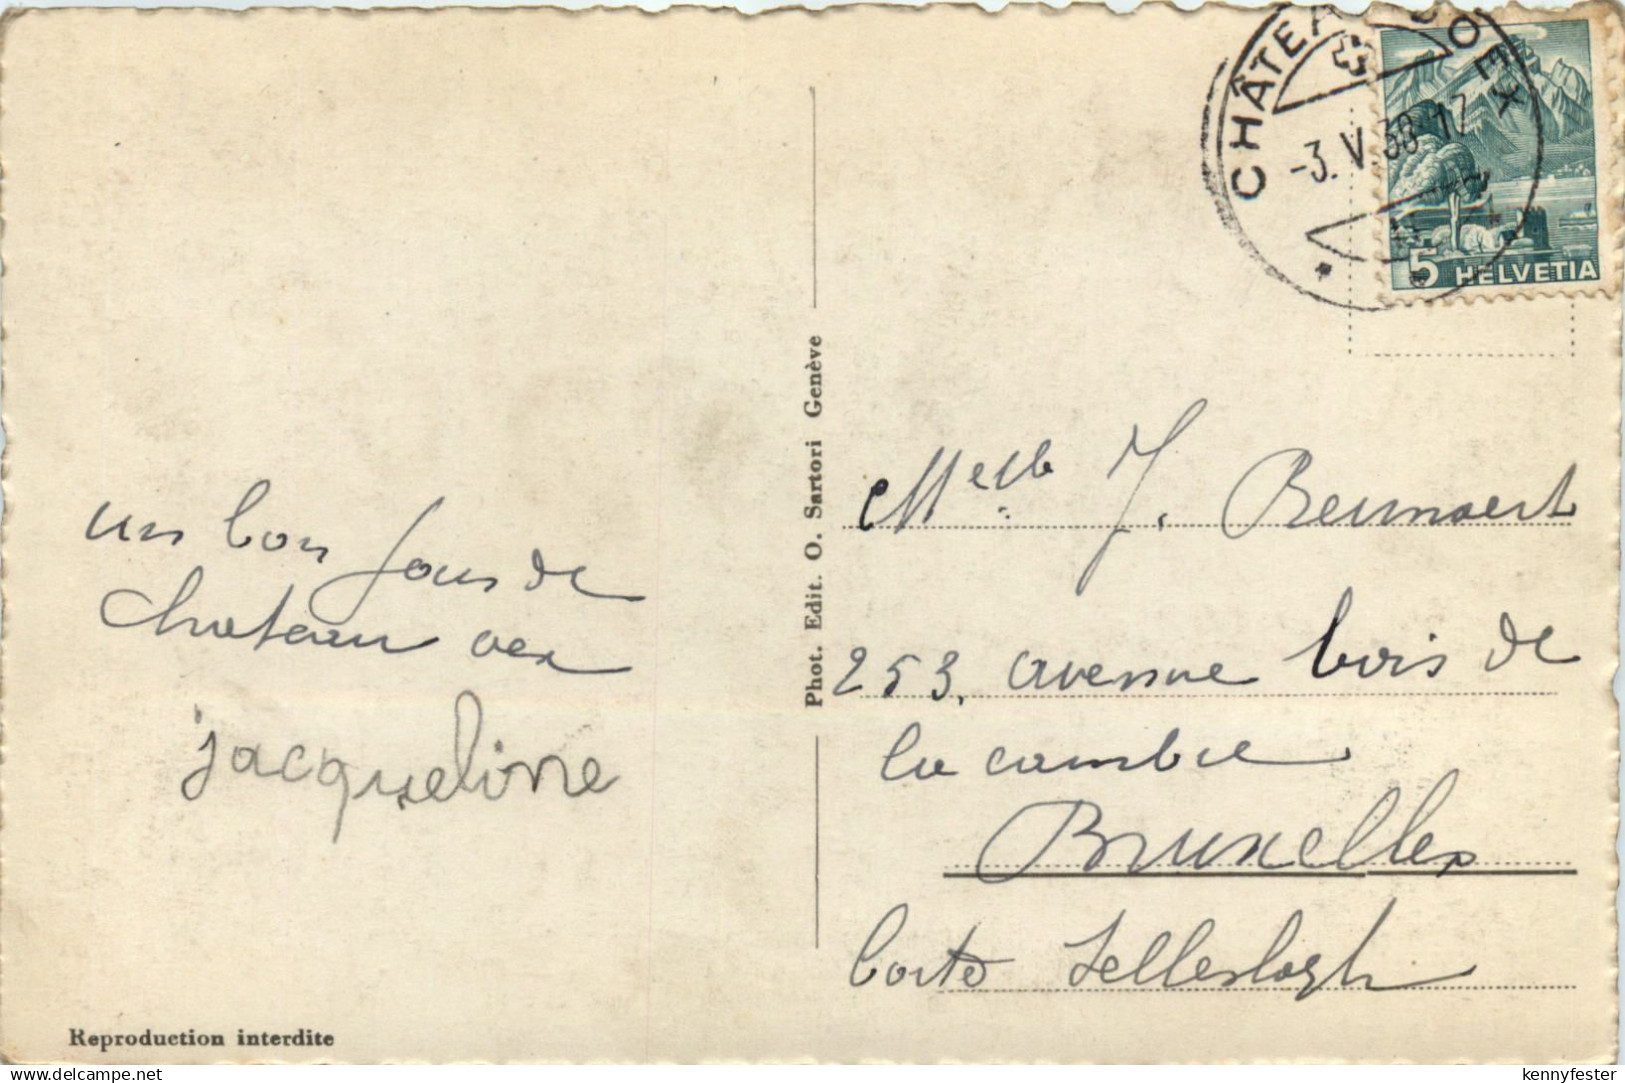 CHÂTEAU D'OEX
-3.V.38.17
5 HELVETIA
un bon jour de
chateau oex
jacqueline
Reproduction interdite
Phot. Edit. O. Sartori Genève
Melle J.
253, avenue bois de
la cambre
Bruxelles
kennyfester